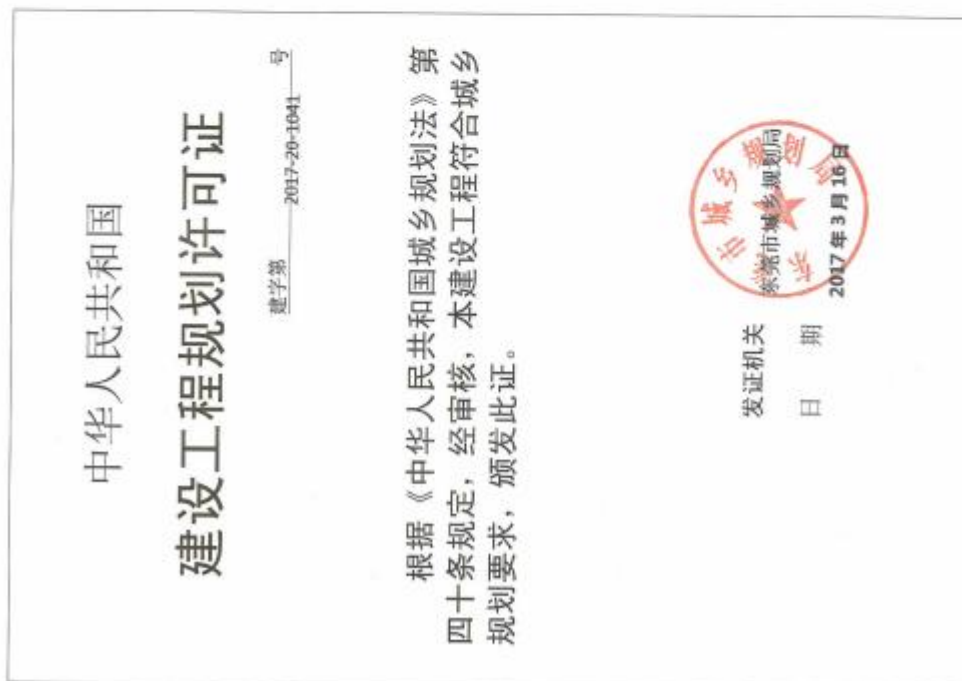 中华人民共和国
建设工程规划许可证
建字第 2017-20-1041 号
根据《中华人民共和国城乡规划法》第
四十条规定，经审核，本建设工程符合城乡
规划要求，颁发此证。
发证机关 东莞市城乡规划局
日 期 2017年3月16日
东莞市城乡规划局